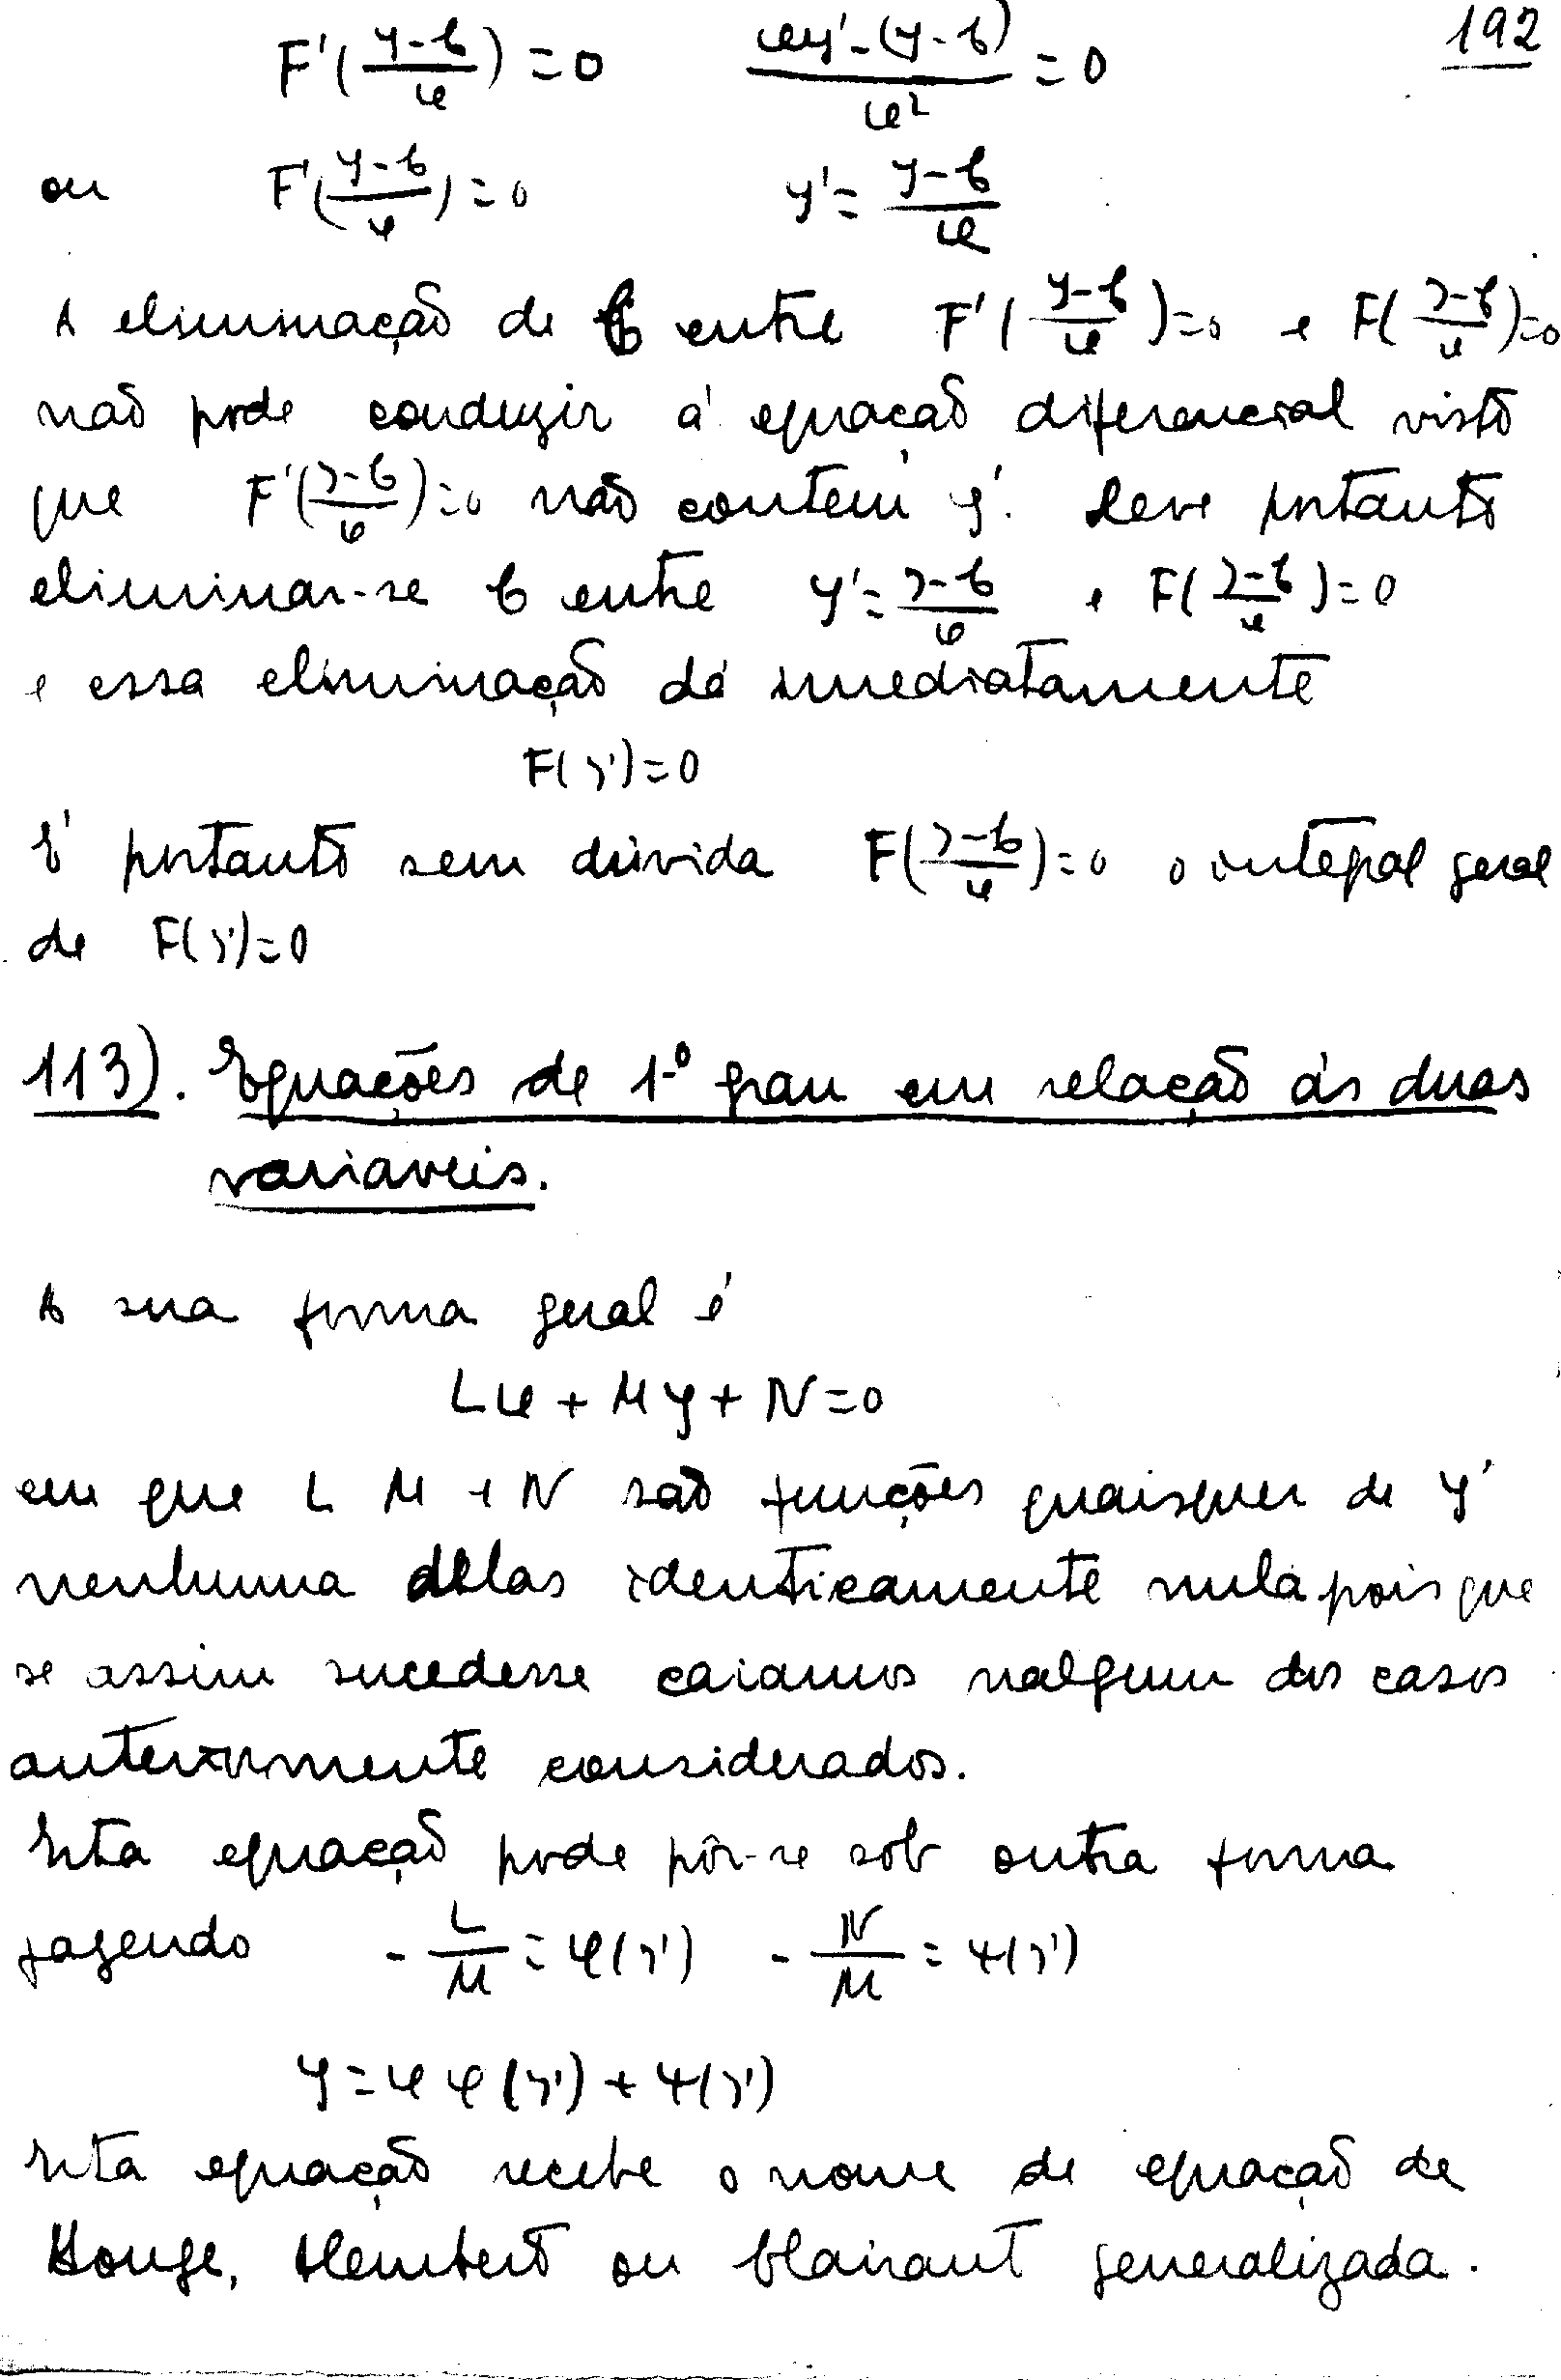 192
F'((y-b)/x) = 0    (xy' - (y-b))/x² = 0
ou    F'((y-b)/x) = 0    y' = (y-b)/x
A eliminação de b entre F'((y-b)/x) = 0 e F((y-b)/x) = 0
não pode conduzir á equação diferencial visto
que F'((y-b)/x) = 0 não contem y'. Deve portanto
eliminar-se b entre y' = (y-b)/x e F((y-b)/x) = 0
e essa eliminação dá imediatamente
F(y') = 0
E' portanto sem dúvida F((y-b)/x) = 0 o integral geral
de F(y') = 0
113). Equações de 1.º grau em relação ás duas
variaveis.
A sua forma geral é
Lx + My + N = 0
em que L M e N são funções quaisquer de y'
nenhuma delas identicamente nula pois que
se assim sucedesse caiamos nalgum dos casos
anteriormente considerados.
Esta equação pode pôr-se sob outra forma
fazendo    - L/M = φ(y')    - N/M = ψ(y')
y = x φ(y') + ψ(y')
Esta equação recebe o nome de equação de
Monge, Alembert ou Clairaut generalizada.